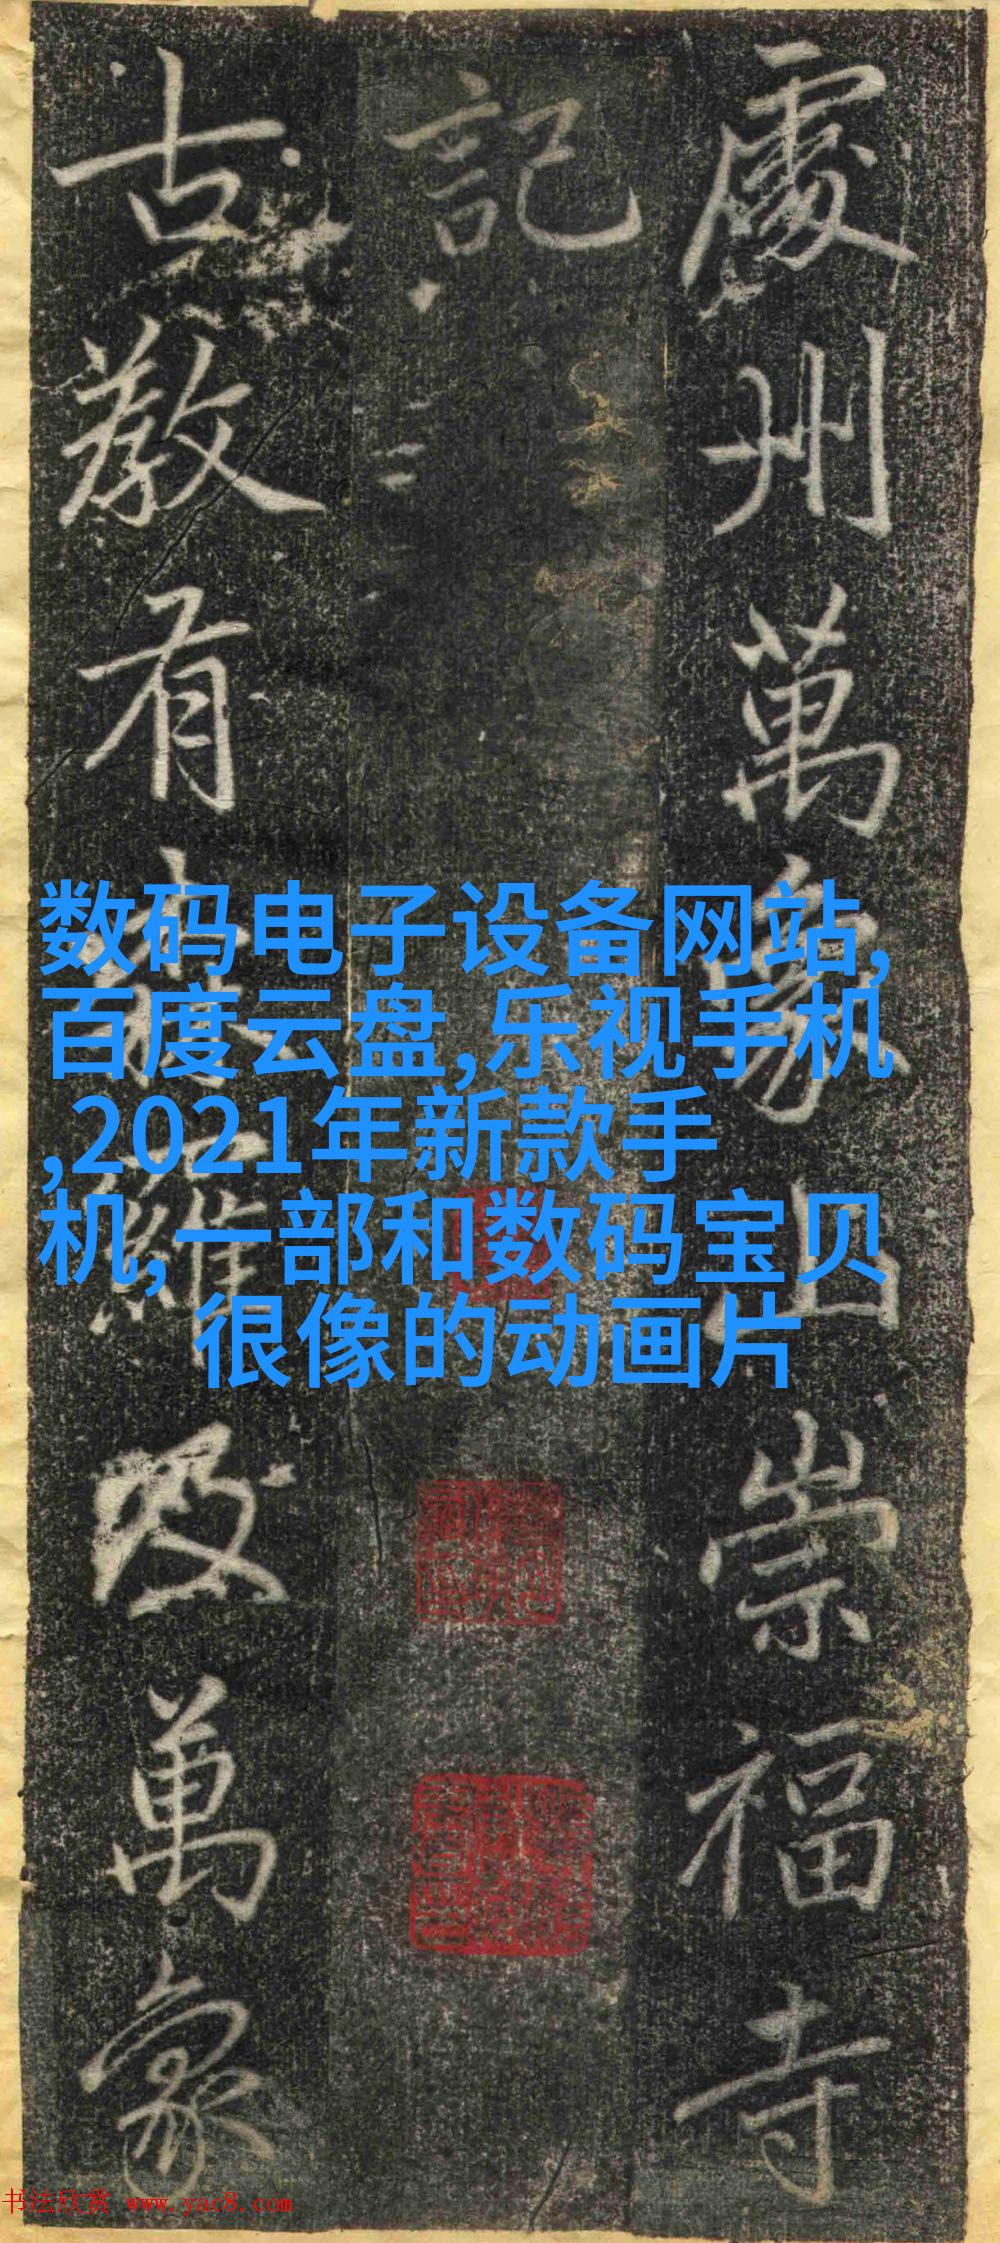 處州萬象山崇福寺
記
古教有森羅及萬象
数码电子设备网站,
百度云盘,乐视手机
,2021年新款手
机, 一部和数码宝贝
很像的动画片
书法欣赏 www.yac8.com